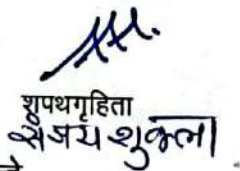 शपथगृहिता
संजय शुक्ला